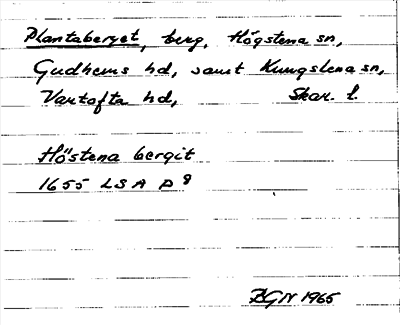 Plantaberget, berg, Högstena sn,
Gudhems hd, samt Kungslena sn,
Vartofta hd, Skar. l.
Höstena bergit
1655 LSA P 8
BGN 1965